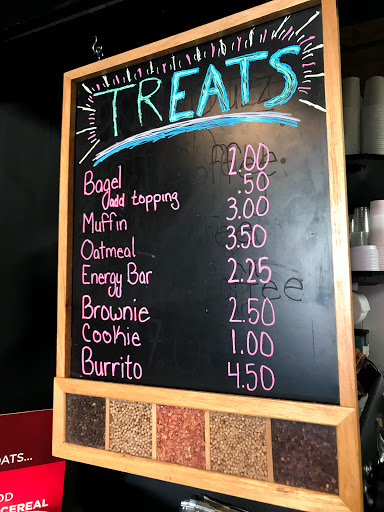 TREATS
Bagel 2.00
add topping .50
Muffin 3.00
Oatmeal 3.50
Energy Bar 2.25
Brownie 2.50
Cookie 1.00
Burrito 4.50
OATS...
CEREAL